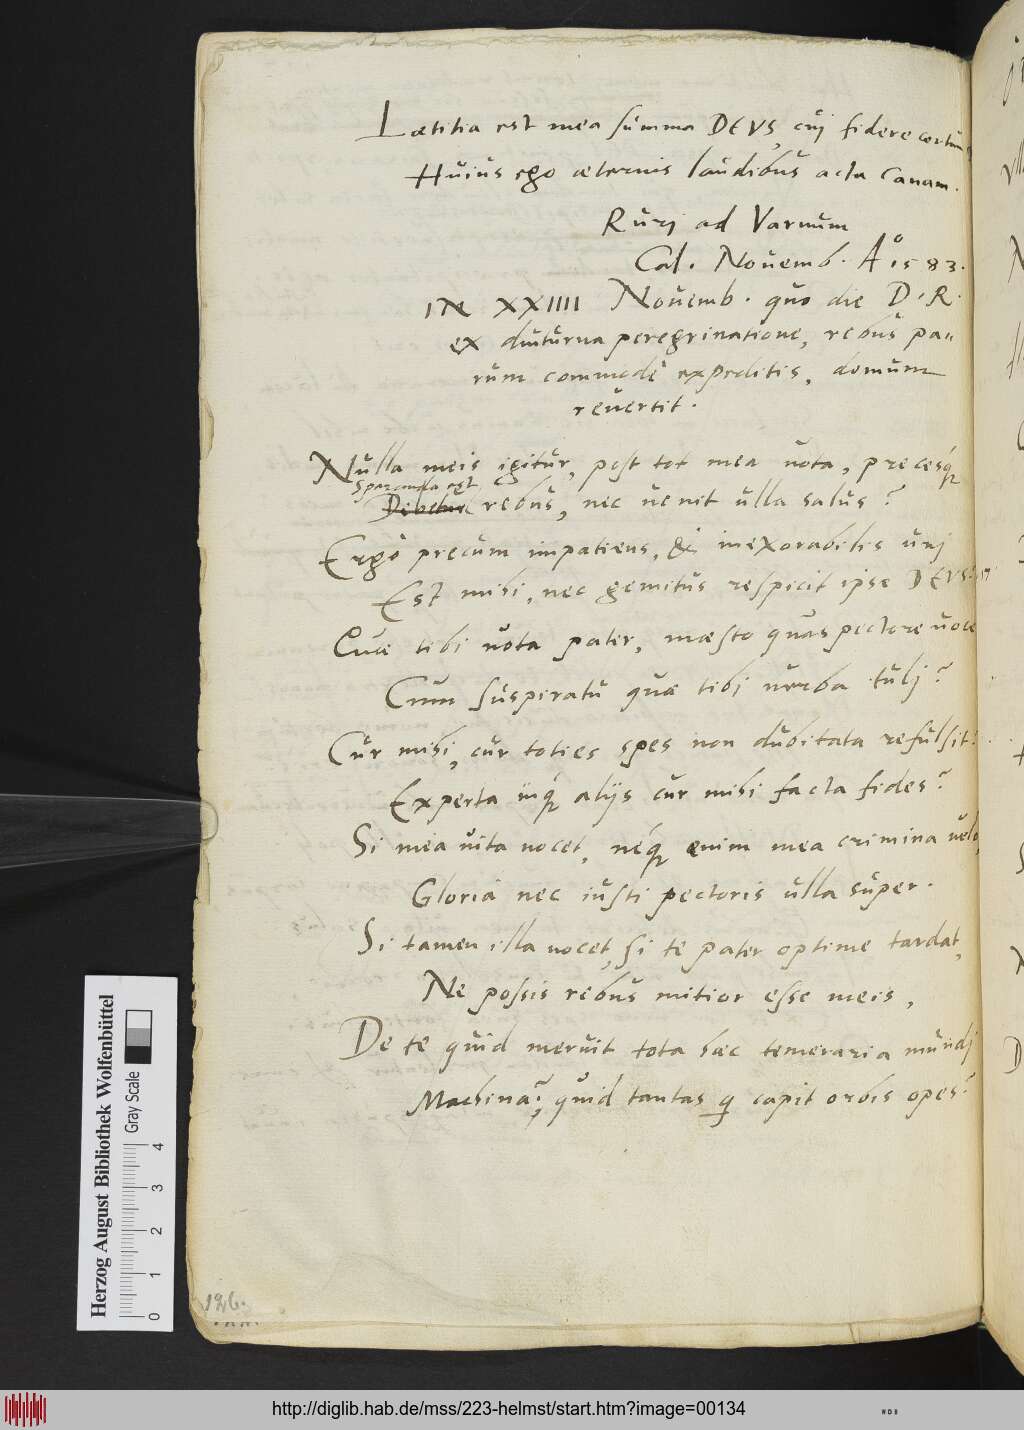 Laetitia est mea summa DEVS, cuj fidere certum
Huius ego aeternis laudibus acta canam.
Rurj ad Varnum
Cal. Nouemb. Aº 1583.
IN XXIIII Nouemb. quo die D. R.
ex diuturna peregrinatione, rebus pa-
rum commodè expeditis, domum
reuertit.
Nulla meis igitur, post tot mea uota, precesq́
Speranda est
Debetur rebus, nec uenit ulla salus?
Ergo precum impatiens, & inexorabilis urj
Est mihi, nec gemitus respicit ipse DEVS?
Cuae tibi uota pater, maesto quas pectore uoce
Cum suspiratu quae tibj uerba tulj?
Cur mihi, cur toties spes non dubitata refulsit?
Experta iiq́ alijs cur mihi facta fides?
Si mea uita nocet, neq́ enim mea crimina uelo,
Gloria nec iusti pectoris ulla super.
Si tamen illa nocet, si te pater optime tardat,
Ne possis rebus mitior esse meis,
De te quid meruit tota haec temeraria mundj
Machina? quid tantas q capit orbis opes?
126.
Herzog August Bibliothek Wolfenbüttel
Gray Scale
0 1 2 3 4
http://diglib.hab.de/mss/223-helmst/start.htm?image=00134